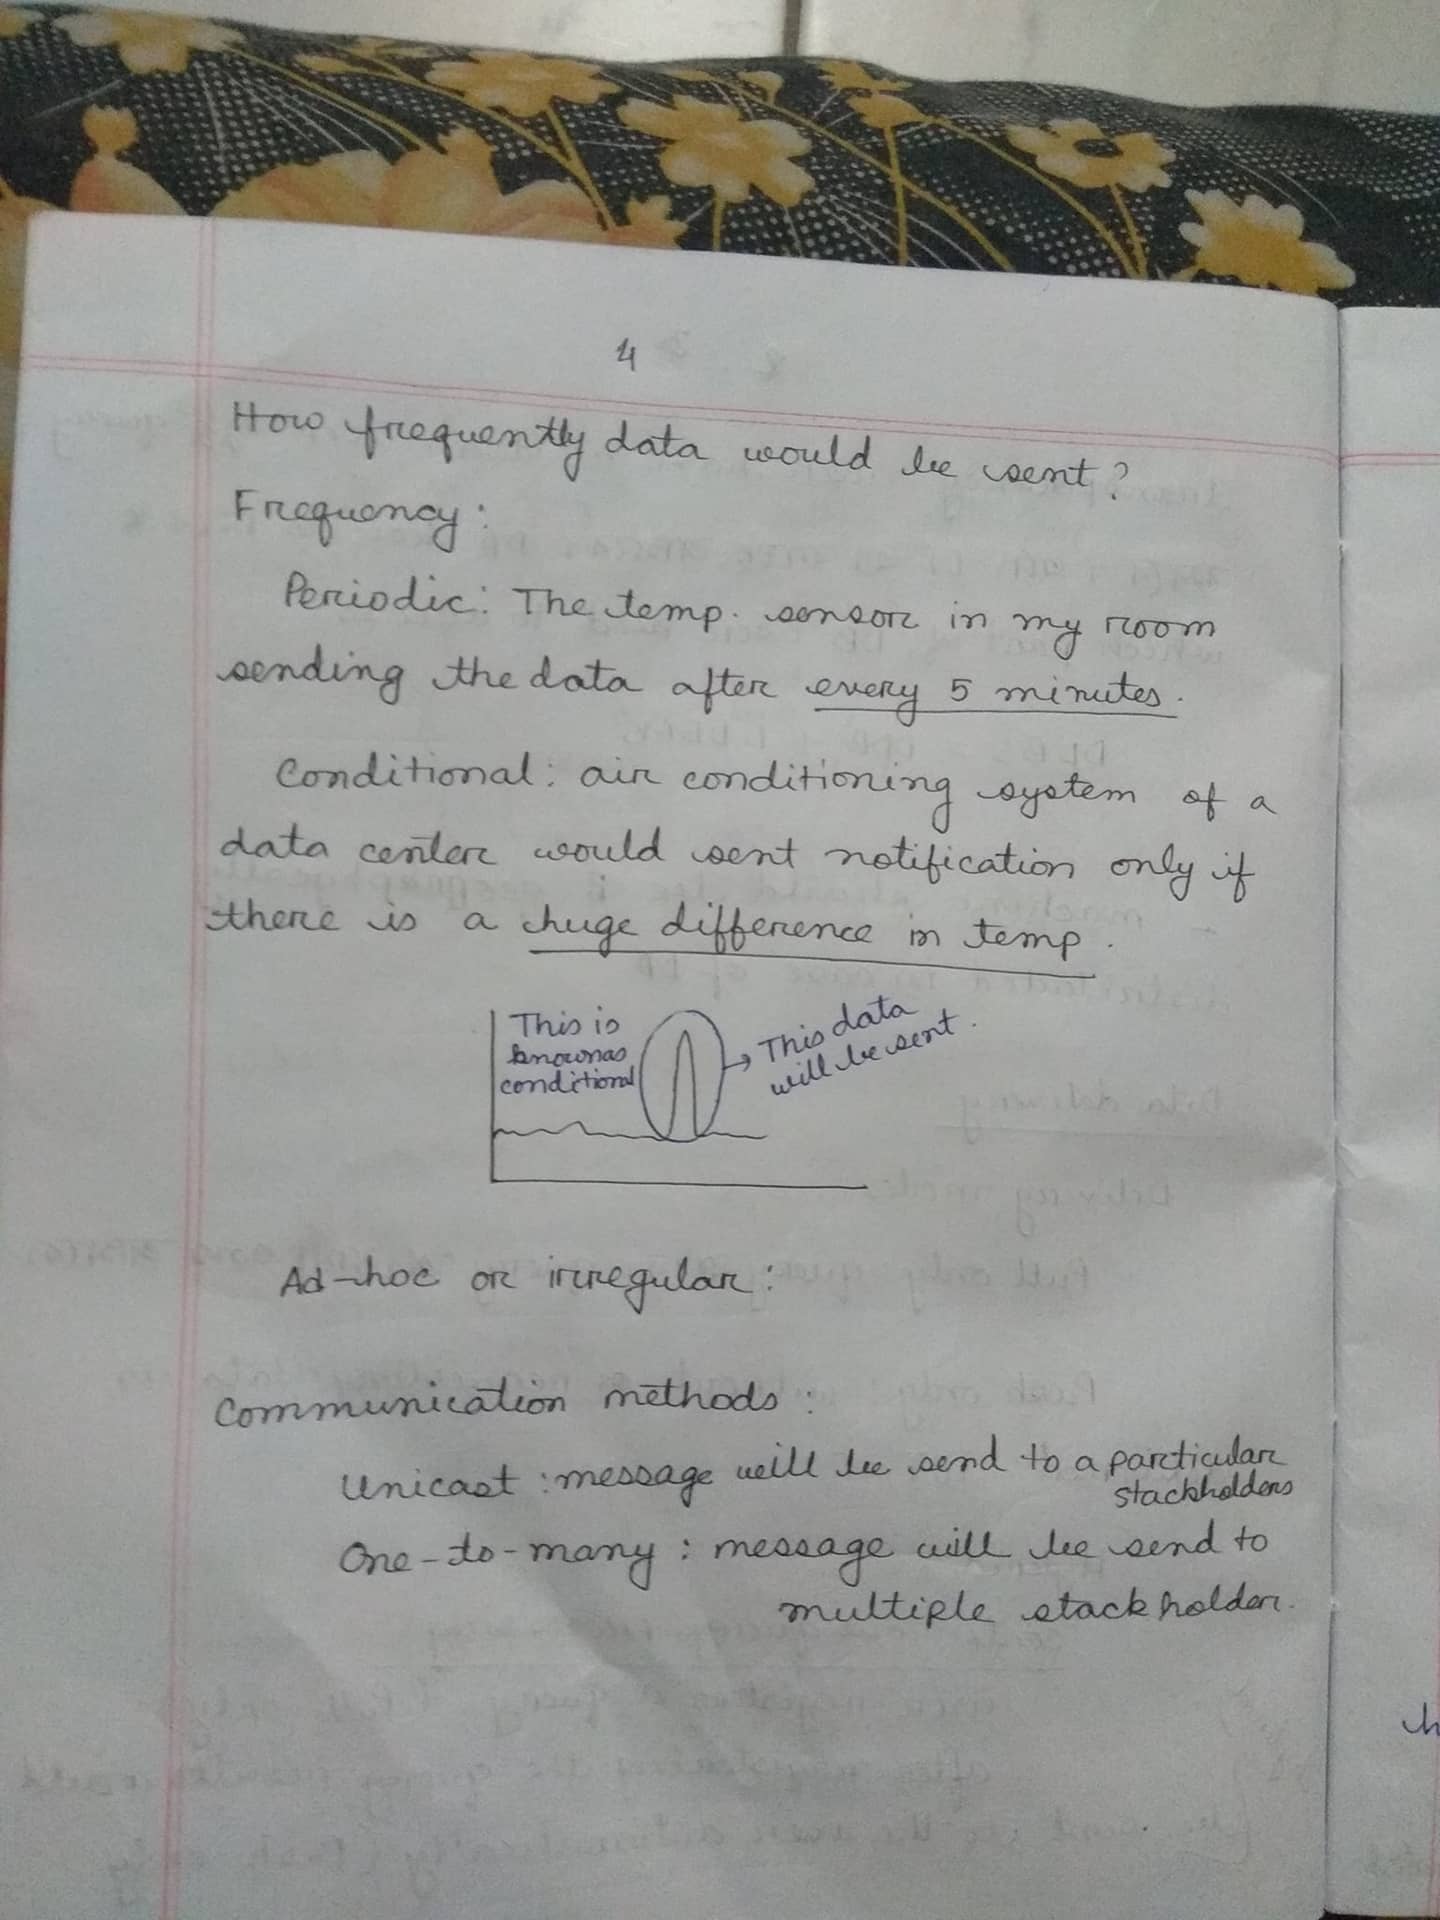 4
How frequently data would be sent?
Frequency:
Periodic: The temp. sensor in my room
sending the data after every 5 minutes.
Conditional: air conditioning system of a
data center would sent notification only if
there is a huge difference in temp.
This is
known as
conditional
→ This data
will be sent.
Ad-hoc or irregular:
Communication methods:
Unicast: message will be send to a particular
stackholders
One-to-many: message will be send to
multiple stackholder.